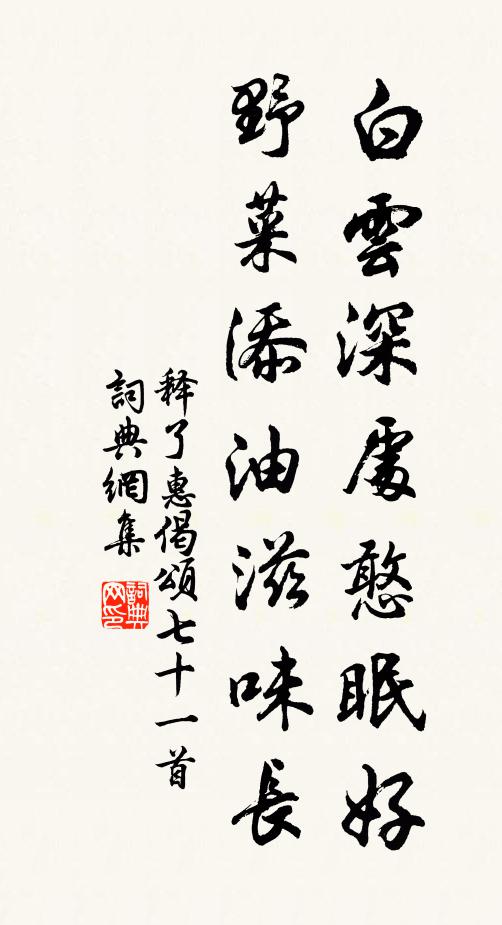 白雲深處憨眠好
野菜添油滋味長
释了惠偈頌七十一首
詞典網集
詞典網印